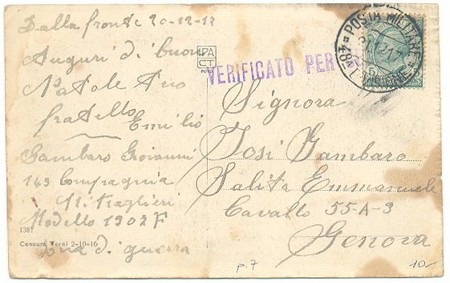 Dalla fronte 20-12-17
Auguri di buon
Natale tuo
fratello
Emilio
Gambaro Giovanni
163 Compagnia
Mitraglieri
Modello 1907 F
Zona di guerra
1387
Censura Torni 2-10-16
PACT
VERIFICATO PER
POSTA MILITARE
Signora
Gambaro
Salita Emmanuele
Cavallo 55-A-3
Genova
p.7
10